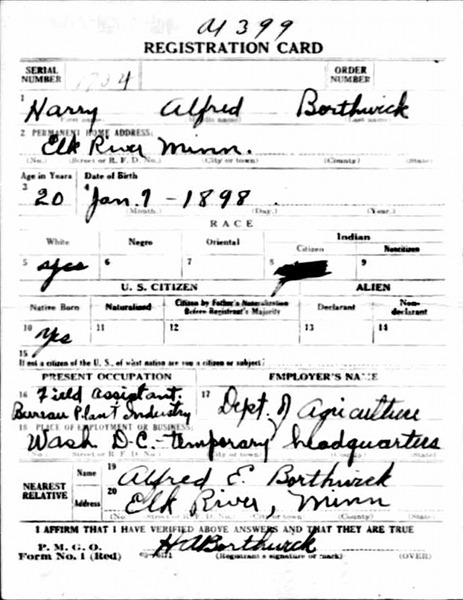 A1399
REGISTRATION CARD
SERIAL NUMBER 1704 ORDER NUMBER
1 Harry Alfred Borthwick
First name Middle name Last name
2 PERMANENT HOME ADDRESS:
Elk River Minn.
(No.) (Street or R. F. D. No.) (City or town) (County) (State)
Age in Years Date of Birth
3 20 4 Jan. 7 - 1898
(Month.) (Day.) (Year.)
RACE
White Negro Oriental Indian
Citizen Noncitizen
5 yes 6 7 8 9
U. S. CITIZEN ALIEN
Native Born Naturalized Citizen by Father's Naturalization Before Registrant's Majority Declarant Non-declarant
10 yes 11 12 13 14
15
If not a citizen of the U. S., of what nation are you a citizen or subject?
PRESENT OCCUPATION EMPLOYER'S NAME
16 Field Assistant. 17 Dept. of Agriculture
Bureau Plant Industry
18 PLACE OF EMPLOYMENT OR BUSINESS:
Wash D.C. - temporary headquarters
(No.) (Street or R. F. D. No.) (City or town) (County) (State)
NEAREST RELATIVE
Name 19 Alfred E. Borthwick
Address 20 Elk River, Minn
(No.) (Street or R. F. D. No.) (City or town) (County) (State)
I AFFIRM THAT I HAVE VERIFIED ABOVE ANSWERS AND THAT THEY ARE TRUE
P. M. G. O.
Form No. 1 (Red) H A Borthwick
(Registrant's signature or mark) (OVER)